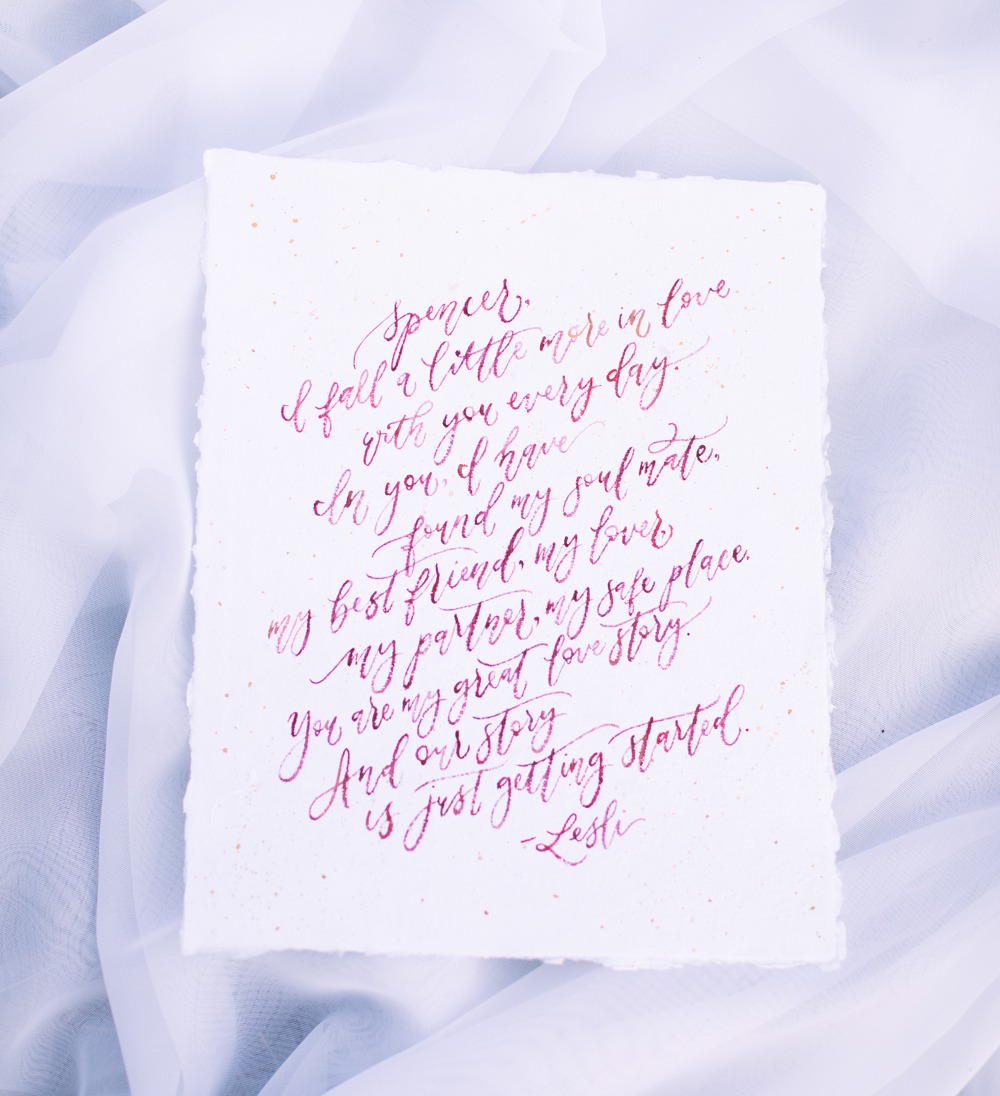 Spencer,
I fall a little more in love
with you every day.
In you, I have
found my soul mate,
my best friend, my lover,
my partner, my safe place.
You are my great love story.
And our story
is just getting started.
-Lesli